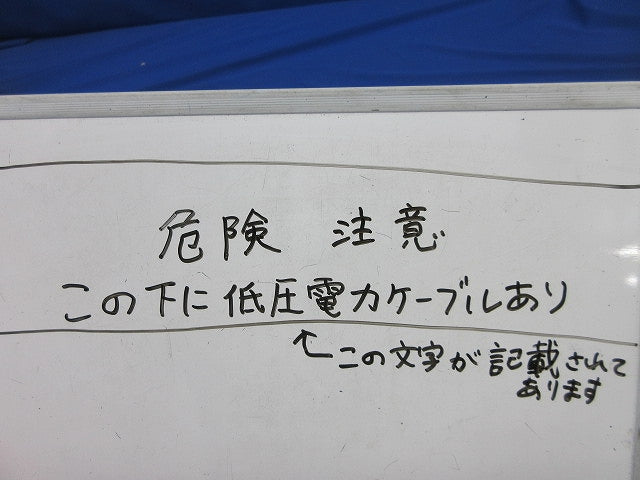 危険 注意
この下に低圧電力ケーブルあり
この文字が記載されて
あります